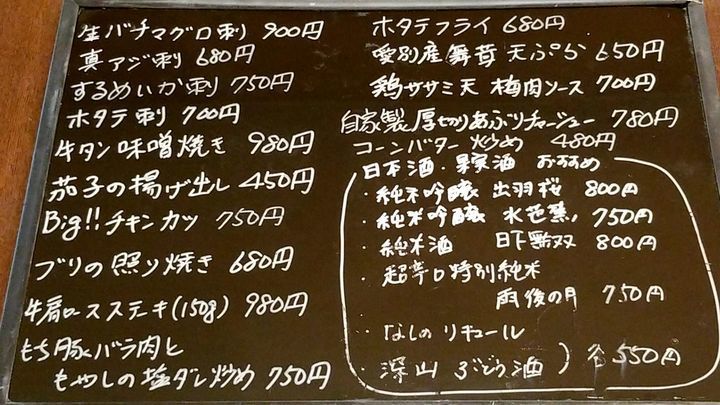 生バチマグロ刺 900円
真アジ刺 680円
するめいか刺 750円
ホタテ刺 700円
牛タン味噌焼き 980円
茄子の揚げ出し 450円
Big!!チキンカツ 750円
ブリの照り焼き 680円
牛肩ロースステーキ(150g) 980円
もち豚バラ肉と
もやしの塩ダレ炒め 750円
ホタテフライ 680円
愛別産舞茸 天ぷら 650円
鶏ササミ天 梅肉ソース 700円
自家製厚切りあぶりチャーシュー 780円
コーンバター炒め 480円
日本酒・果実酒 おすすめ
・純米吟醸 出羽桜 800円
・純米吟醸 水芭蕉 750円
・純米酒 日下無双 800円
・超辛口特別純米
雨後の月 750円
・なしのリキュール
・深山ぶどう酒 ) 各550円